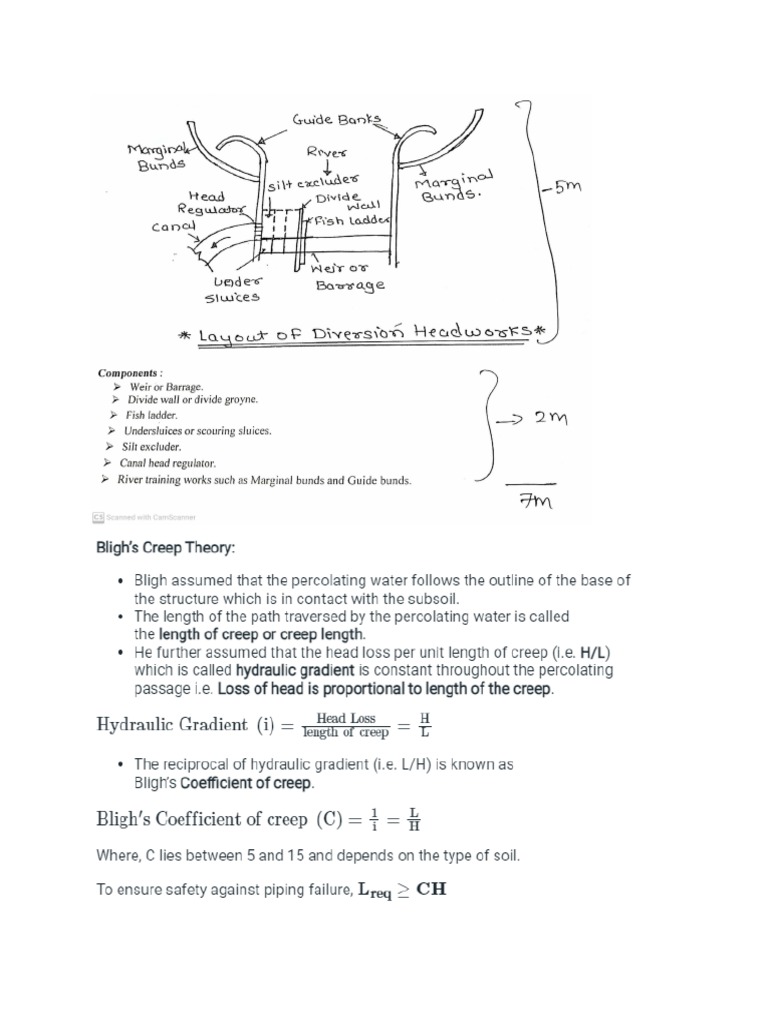 Guide Banks
Marginal
Bunds
River
silt excluder
Marginal
Bunds.
-5m
Head
Regulator
Divide
Wall
Fish ladder
Canal
Under
Sluices
Weir or
Barrage
* Layout of Diversion Headworks *
Components :
➢ Weir or Barrage.
➢ Divide wall or divide groyne.
➢ Fish ladder.
➢ Undersluices or scouring sluices.
➢ Silt excluder.
➢ Canal head regulator.
➢ River training works such as Marginal bunds and Guide bunds.
→ 2m
7m
CS Scanned with CamScanner
Bligh's Creep Theory:
• Bligh assumed that the percolating water follows the outline of the base of
the structure which is in contact with the subsoil.
• The length of the path traversed by the percolating water is called
the length of creep or creep length.
• He further assumed that the head loss per unit length of creep (i.e. H/L)
which is called hydraulic gradient is constant throughout the percolating
passage i.e. Loss of head is proportional to length of the creep.
Hydraulic Gradient (i) = Head Loss / length of creep = H / L
• The reciprocal of hydraulic gradient (i.e. L/H) is known as
Bligh's Coefficient of creep.
Bligh's Coefficient of creep (C) = 1 / i = L / H
Where, C lies between 5 and 15 and depends on the type of soil.
To ensure safety against piping failure, Lreq ≥ CH